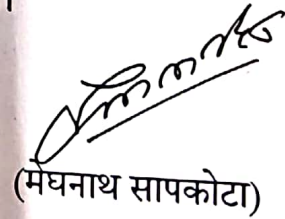 (मेघनाथ सापकोटा)